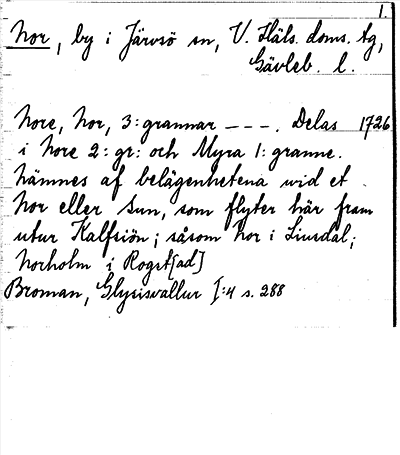 1.
Nor, by i Järvsö sn, V. Häls. doms. tg,
Gävleb. l.
Nore, Nor, 3: grannar ---. Delas 1726
i Nore 2: gr: och Myra 1: granne.
Nämnes af belägenhetena wid et
Nor eller Sun, som flyter här fram
utur Kalfsiön; såsom Nor i Liusdal;
Norholm i Rogst[ad]
Broman, Glysisvallur I:4 s. 288